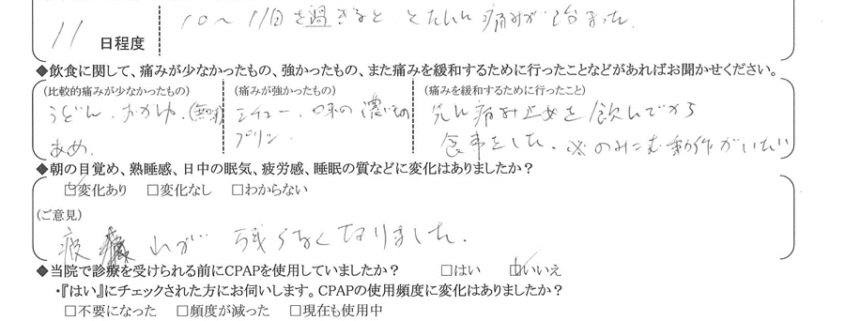 11 日程度
10〜11日を過ぎると とたんに痛みが治まった
◆飲食に関して、痛みが少なかったもの、強かったもの、また痛みを緩和するために行ったことなどがあればお聞かせください。
(比較的痛みが少なかったもの) (痛みが強かったもの) (痛みを緩和するために行ったこと)
うどん、おかゆ、 シチュー、味の濃いもの 先に痛み止めを飲んでから
あめ プリン 食事をした。※のみこむ動作がいたい
◆朝の目覚め、熟睡感、日中の眠気、疲労感、睡眠の質などに変化はありましたか？
☑変化あり □変化なし □わからない
(ご意見)
疲れが残らなくなりました。
◆当院で診療を受けられる前にCPAPを使用していましたか？ □はい ☑いいえ
・『はい』にチェックされた方にお伺いします。CPAPの使用頻度に変化はありましたか？
□不要になった □頻度が減った □現在も使用中